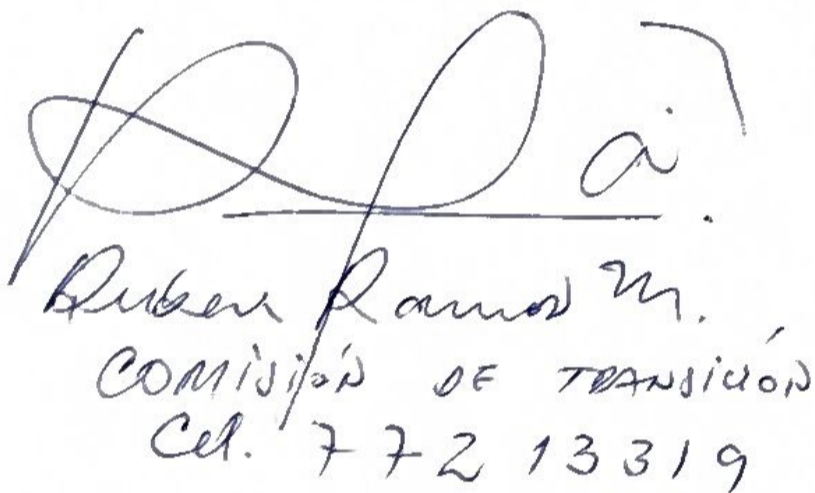 Ruben Ramos M.
COMISIÓN DE TRANSICIÓN
Cel. 772 13319